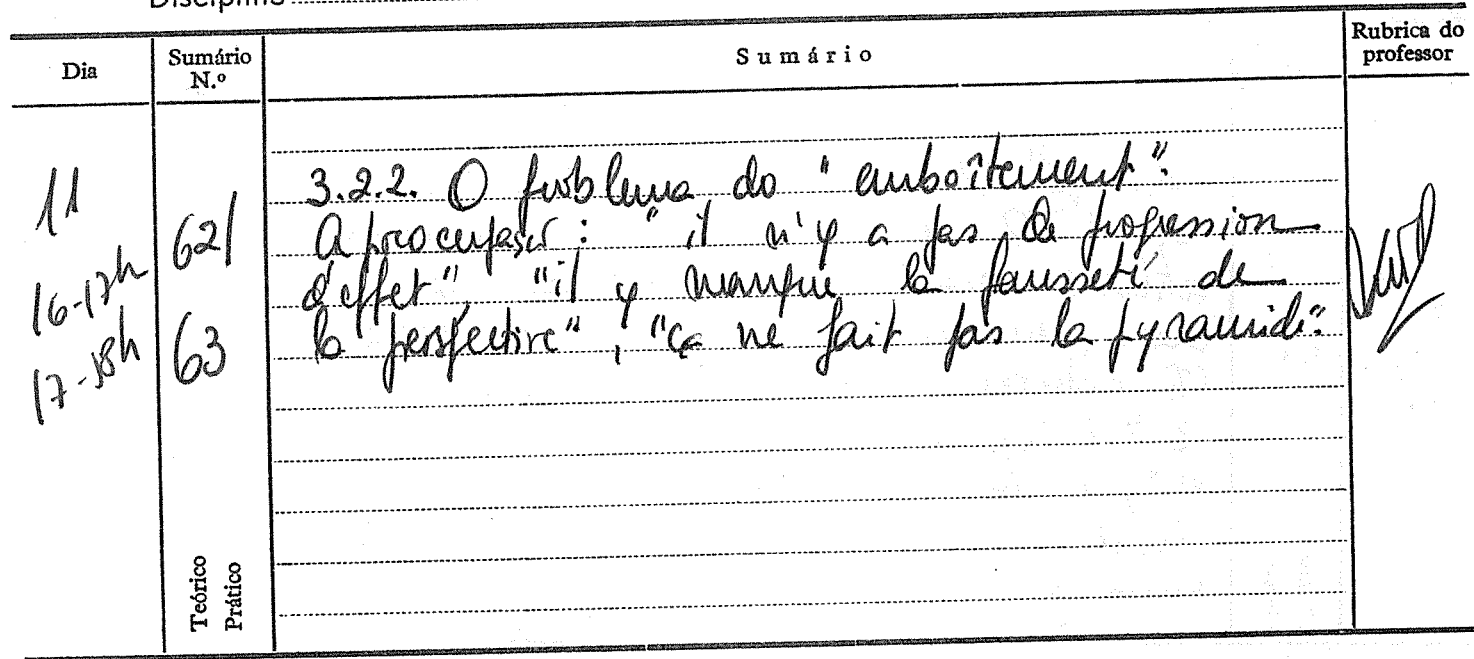 Disciplina
Dia
Sumário N.º
Sumário
Rubrica do professor
11
16-17h
17-18h
62/
63
3.2.2. O problema do "emboîtement".
A preocupação: "il n'y a pas de progression
d'effet", "il y manque la fausseté de
la perspective", "ça ne fait pas la pyramide".
Teórico
Prático